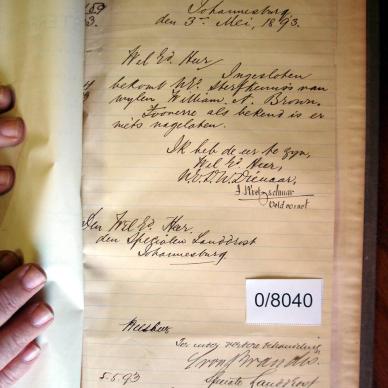 Johannesburg
den 3den Mei, 1893.
Wel Ed. Heer
Ingesloten
bekomt UEd. Sterfkennis van
wylen William A. Brown.
Zooverre als bekend is er
niets nagelaten.
Ik heb de eer te zyn,
Wel Ed. Heer,
U.E.D.W. Dienaar,
Veldcornet
Den Wel Ed. Heer
den Spezialen Landdrost
Johannesburg
0/8040
Weesheer
Ter uwer verdere behandeling
von Brandis
5.5.93
Speciale Landdrost